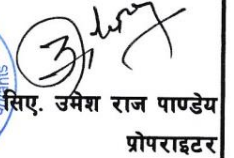 सिए. उमेश राज पाण्डेय
प्रोपराइटर